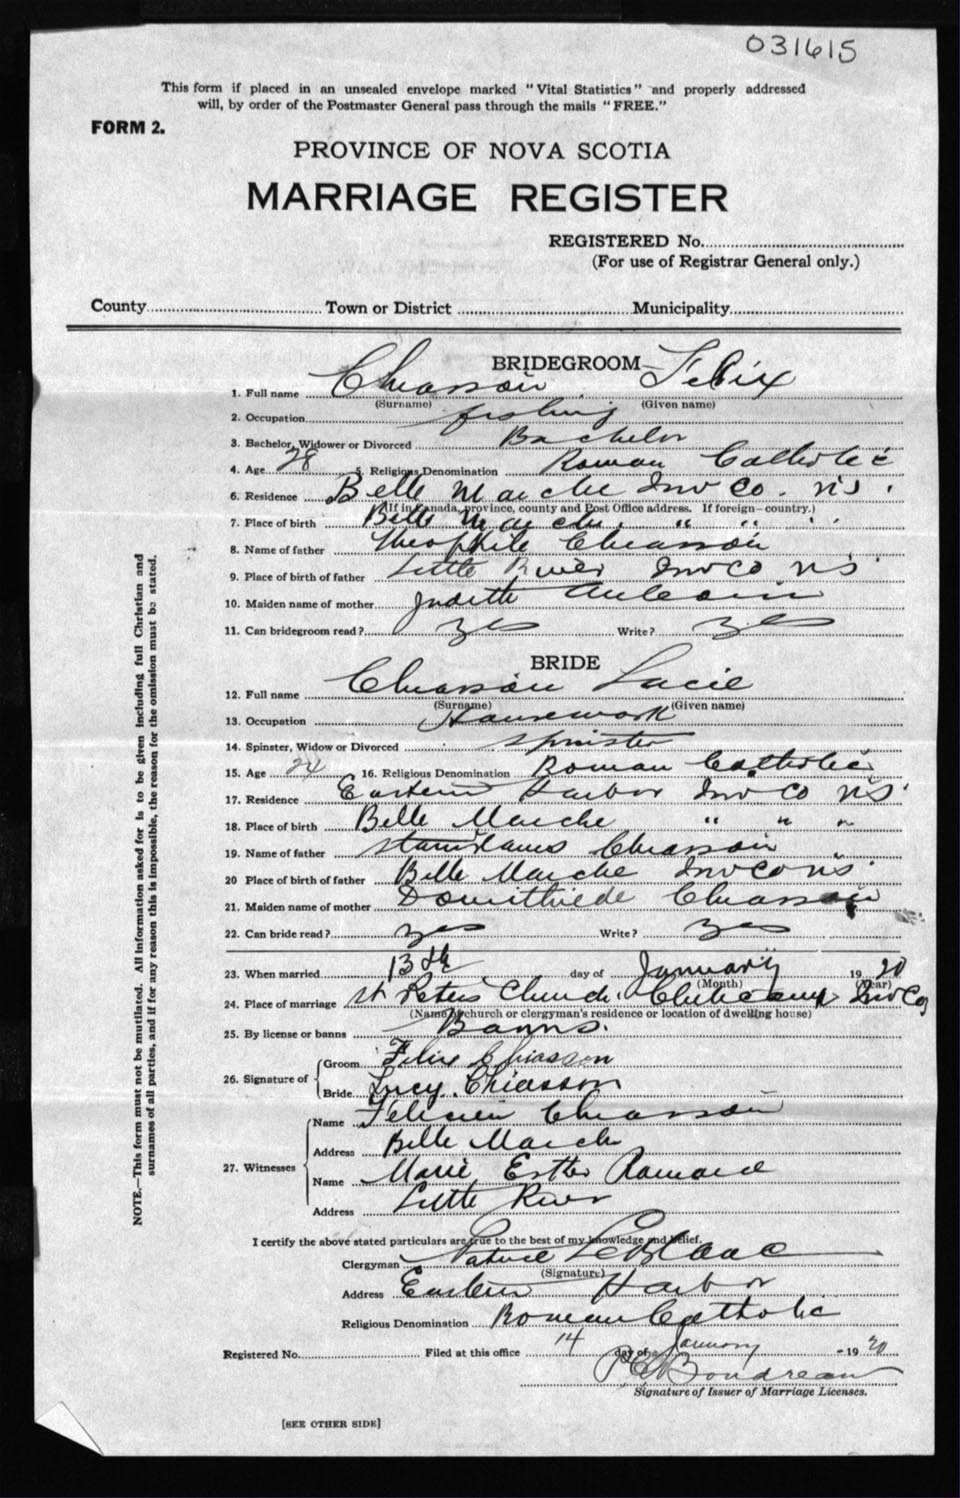 031615
This form if placed in an unsealed envelope marked "Vital Statistics" and properly addressed
will, by order of the Postmaster General pass through the mails "FREE."
FORM 2.
PROVINCE OF NOVA SCOTIA
MARRIAGE REGISTER
REGISTERED No.
(For use of Registrar General only.)
County Town or District Municipality
BRIDEGROOM
1. Full name Chiasson Felix
(Surname) (Given name)
2. Occupation fishing
3. Bachelor, Widower or Divorced Bachelor
4. Age 28 5. Religious Denomination Roman Catholic
6. Residence Belle Marche Inv Co. N.S.
(If in Canada, province, county and Post Office address. If foreign—country.)
7. Place of birth Belle Marche " " "
8. Name of father Theophile Chiasson
9. Place of birth of father Little River Inv Co N.S.
10. Maiden name of mother Judith Aucoin
11. Can bridegroom read? yes Write? yes
BRIDE
12. Full name Chiasson Lucie
(Surname) (Given name)
13. Occupation Housework
14. Spinster, Widow or Divorced Spinster
15. Age 24 16. Religious Denomination Roman Catholic
17. Residence Eastern Harbor Inv Co N.S.
18. Place of birth Belle Marche " " "
19. Name of father Stanislaus Chiasson
20 Place of birth of father Belle Marche Inv Co N.S.
21. Maiden name of mother Domithilde Chiasson
22. Can bride read? yes Write? yes
23. When married 13th day of January 1920
(Month) (Year)
24. Place of marriage St Peters Church Cheticamp Inv Co
(Name of church or clergyman's residence or location of dwelling house)
25. By license or banns Banns.
26. Signature of Groom Felix Chiasson
Bride Lucy Chiasson
27. Witnesses Name Felicien Chiasson
Address Belle Marche
Name Marie Esther Romard
Address Little River
I certify the above stated particulars are true to the best of my knowledge and belief.
Clergyman LeBlanc
(Signature)
Address Eastern Harbor
Religious Denomination Roman Catholic
Registered No. Filed at this office 14 day of January -1920
Boudreau
Signature of Issuer of Marriage Licenses.
[SEE OTHER SIDE]
NOTE.—This form must not be mutilated. All information asked for is to be given including full Christian and
surnames of all parties, and if for any reason this is impossible, the reason for the omission must be stated.